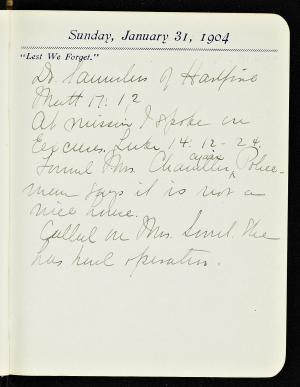 Sunday, January 31, 1904
"Lest We Forget."
Dr. Saunders of
Matt 17: 1,2
At mission I spoke on
Excuses. Luke, 14: 12-24.
Found Mrs. Chandler again, Police-
man says it is not a
nice house.
Called on Mrs. She
has had operation.